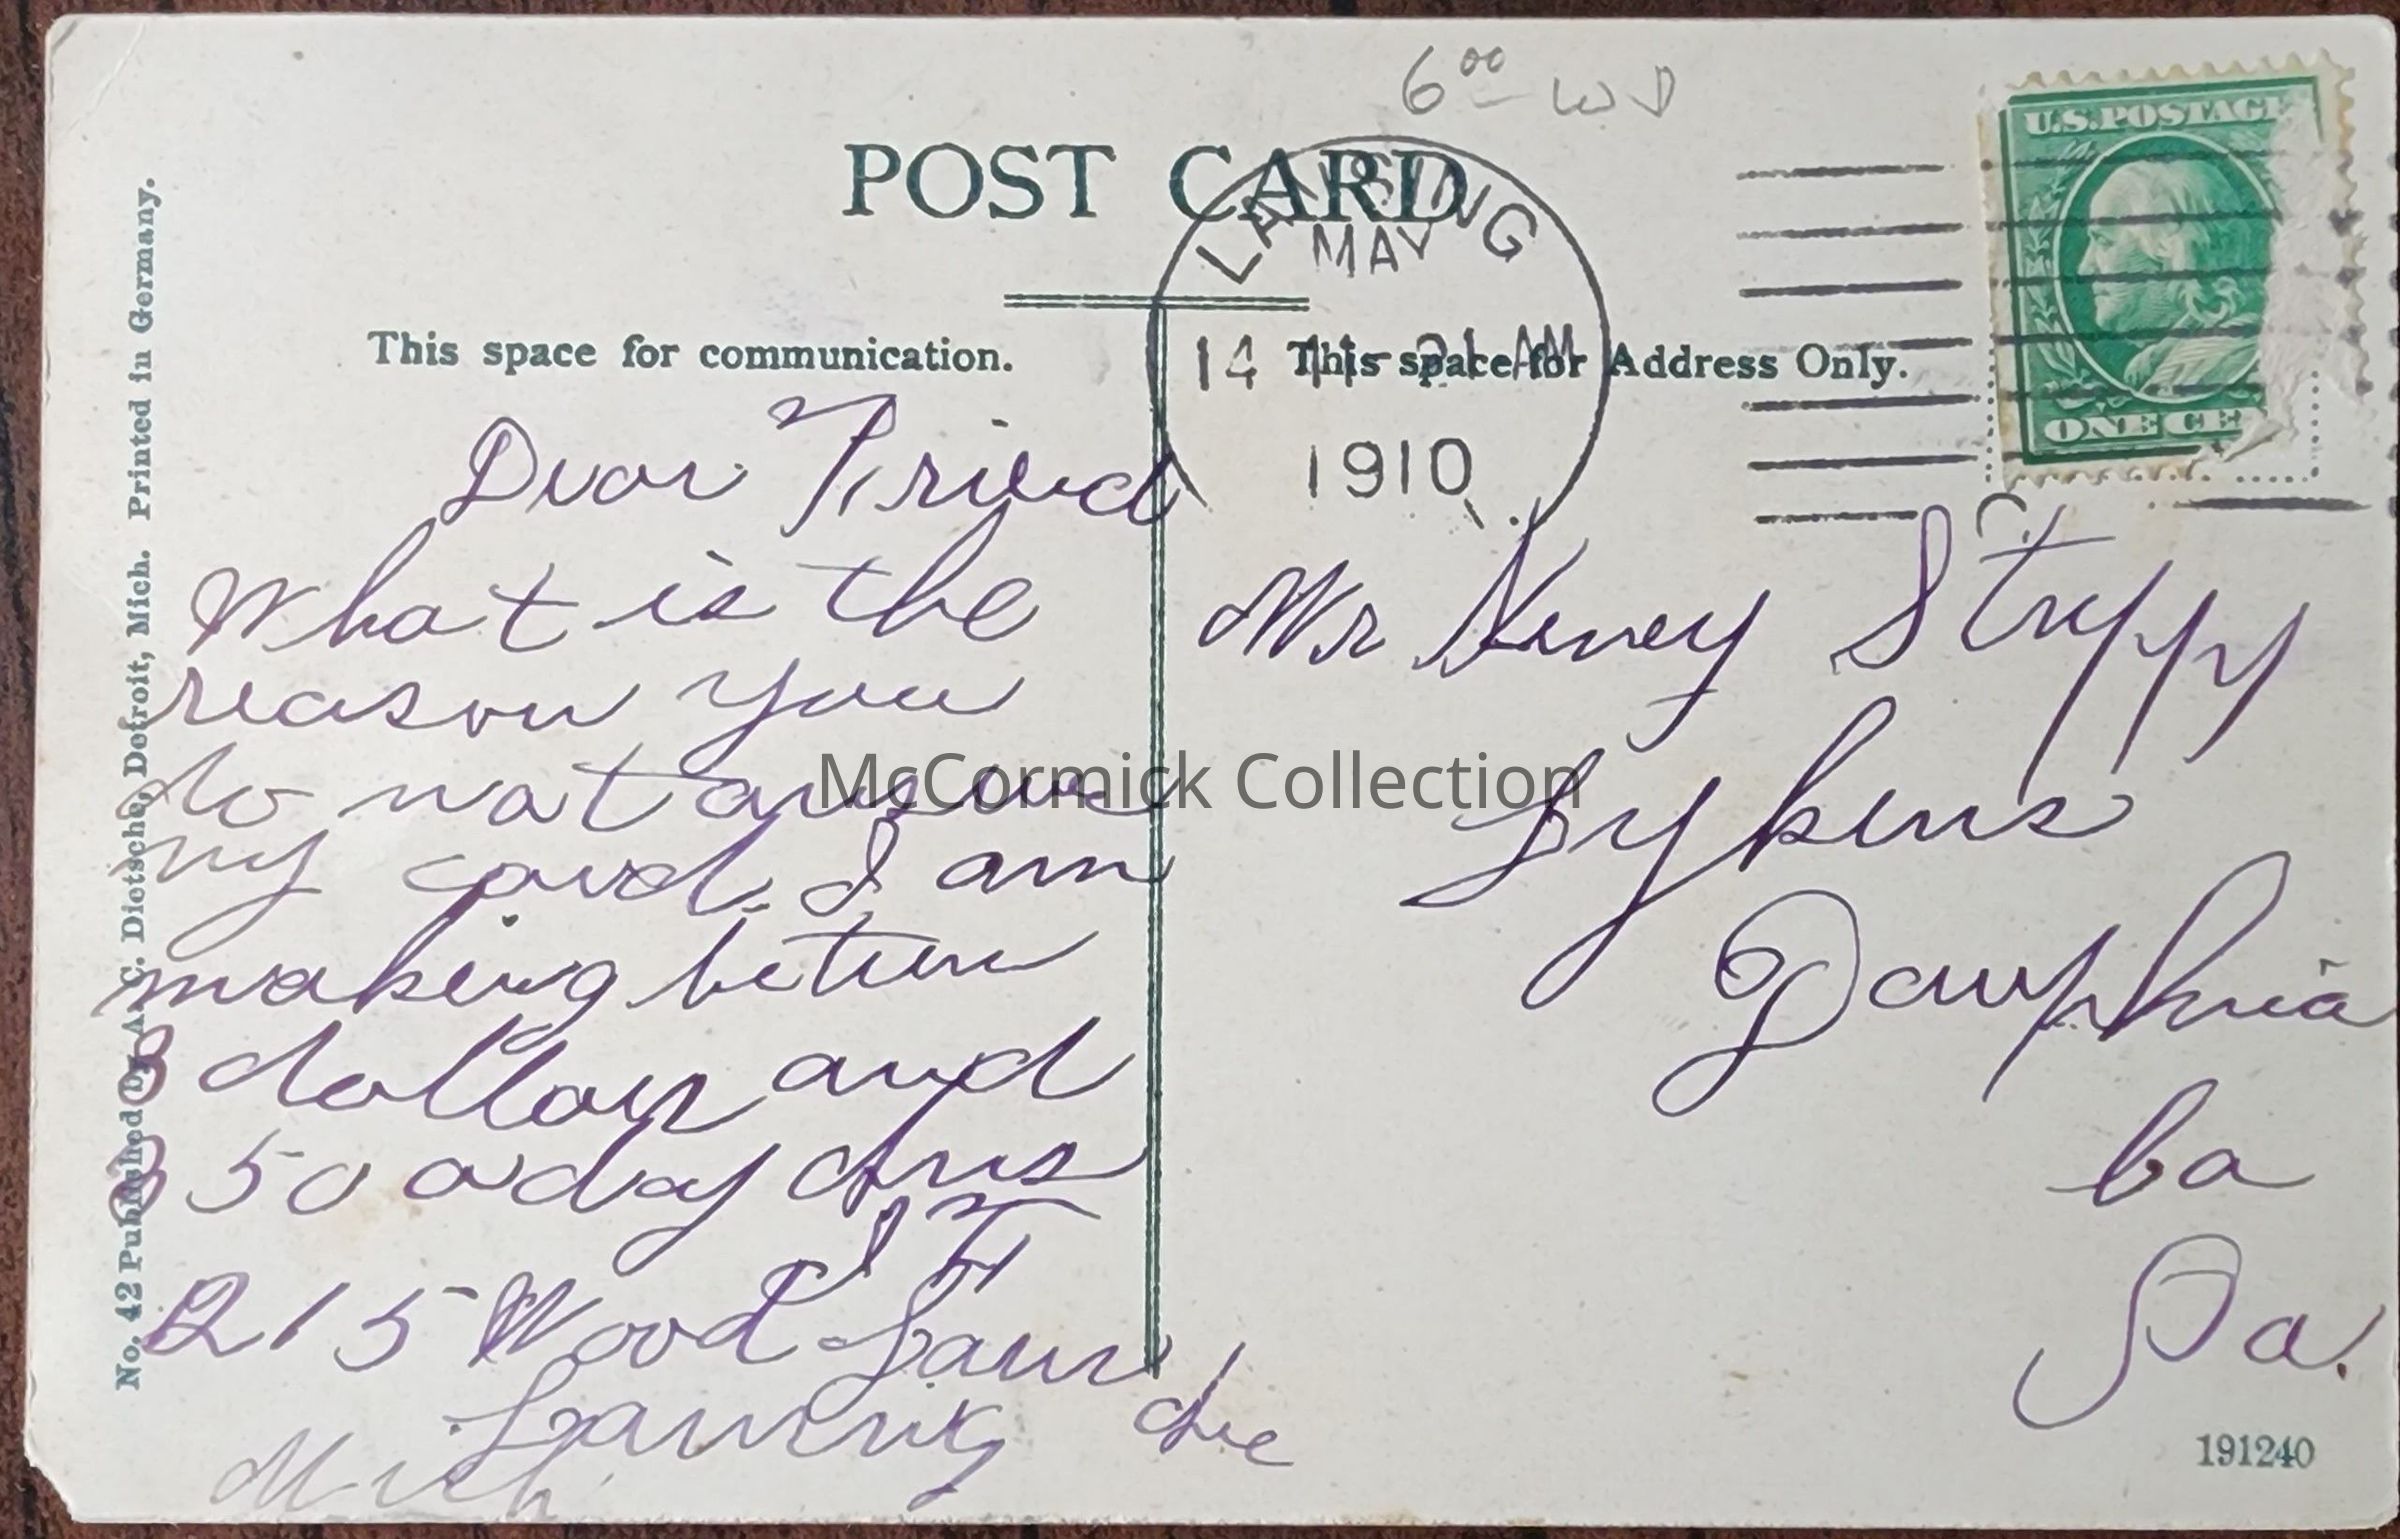 6⁰⁰ WD
U.S. POSTAGE
ONE CE
POST CARD
LANSING
MAY
14
AM
1910
This space for communication.
This space for Address Only.
Dear Friend
What is the
reason you
do not answe
my card. I am
making betwn
3 dollars and
3 50 a day Ans
215 Wood Laun
dre
Lansing
Mich
Mr Henry Stupp
Lykens
Dauphia
Co
Pa.
191240
No. 42 Published by A. C. Diotsche, Detroit, Mich. Printed in Germany.
McCormick Collection